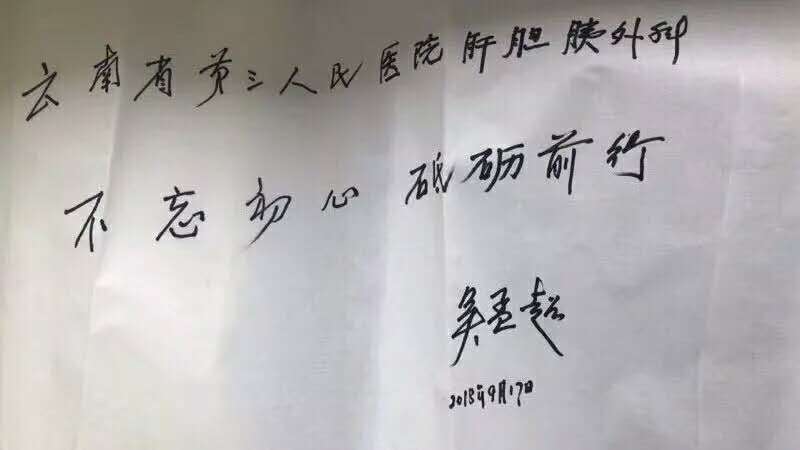 云南省第三人民医院肝胆胰外科
不忘初心 砥砺前行
吴孟超
2018年9月17日